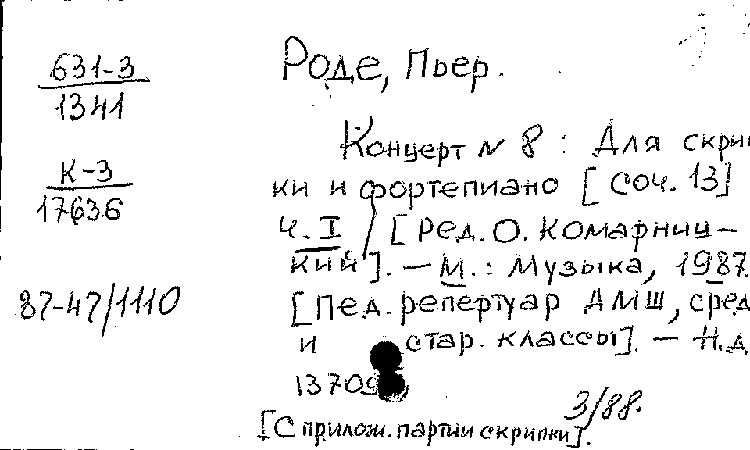 631-3
1341
К-3
17636
87-47/1110
Роде, Пьер.
Концерт № 8 : Для скрип
ки и фортепиано [соч. 13]
ч. I / [Ред. О. Комарниц-
кий]. — М. : Музыка, 1987.
[Пед. репертуар ДМШ, сред
и стар. классы]. — Н.д.
13709
3/88.
[С прилож. партии скрипки].